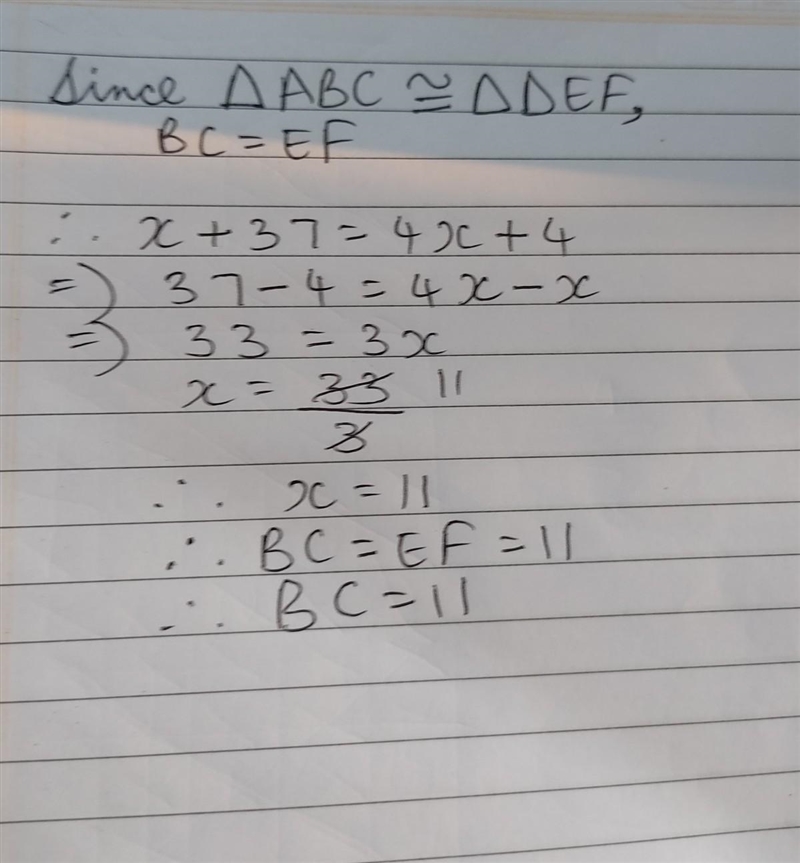 Since ΔABC ≅ ΔDEF,
BC = EF
∴ x + 37 = 4x + 4
⇒ 37 - 4 = 4x - x
⇒ 33 = 3x
x = 33/3 11
∴ x = 11
∴ BC = EF = 11
∴ BC = 11